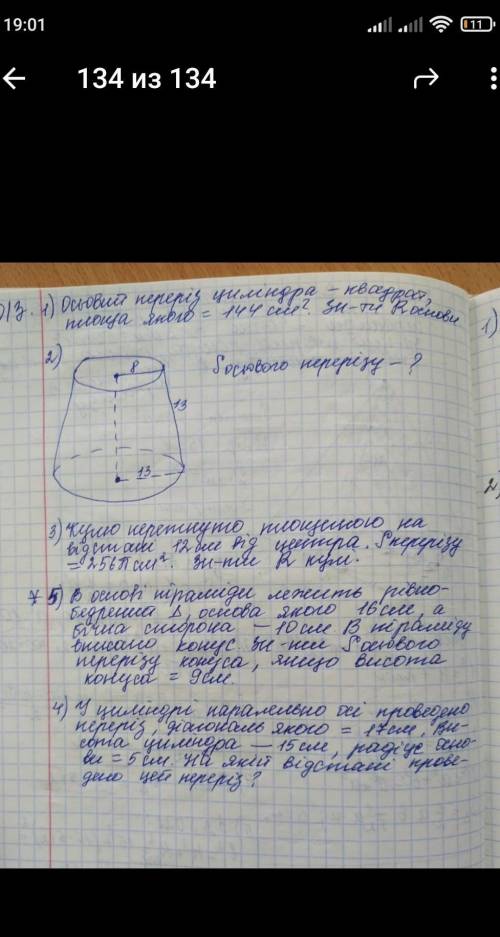 19:01
11
134 из 134
Д/З. 1) Осьовий переріз циліндра – квадрат,
площа якого = 144 см². Зн-ти R основи
1)
2)
8
13
13
S осьового перерізу – ?
2
3) Кулю перетнуто площиною на
відстані 12 см від центра. S перерізу
= 256π см². Зн-ти R кулі.
* 5) В основі піраміди лежить рівно-
бедрений Δ, основа якого 16 см, а
бічна сторона – 10 см В піраміду
вписано конус. Зн-ти S осьового
перерізу конуса, якщо висота
конуса = 9 см.
4) У циліндрі паралельно осі проведено
переріз, діагональ якого = 17 см, Ви-
сота циліндра – 15 см, радіус осно-
ви = 5 см. На якій відстані прове-
дено цей переріз?